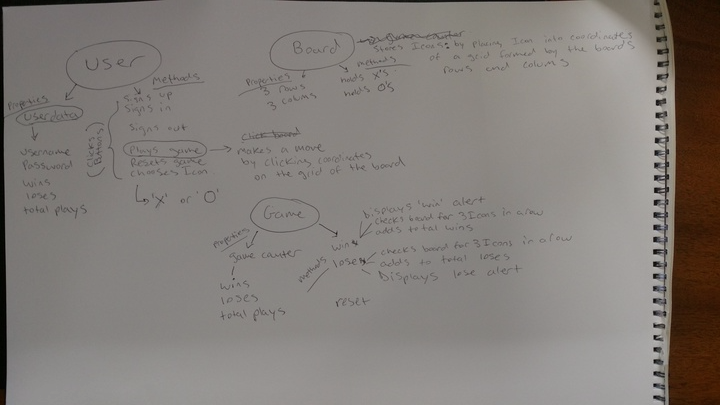 User
Properties
Userdata
username
Password
wins
loses
total plays
Methods
Signs up
Signs in
Signs out
Plays game
Resets game
chooses Icon
(Clicks Buttons)
'X' or 'O'
click board
makes a move
by clicking coordinates
on the grid of the board
Board
Stores Icons: by placing Icon into coordinates
of a grid formed by the boards
rows and colums
Properties
3 rows
3 colums
methods
holds X's
holds O's
Game
propeties
game counter
wins
loses
total plays
methods
win
Displays 'win' alert
checks board for 3 Icons in a row
adds to total wins
lose
checks board for 3 Icons in a row
adds to total loses
Displays lose alert
reset